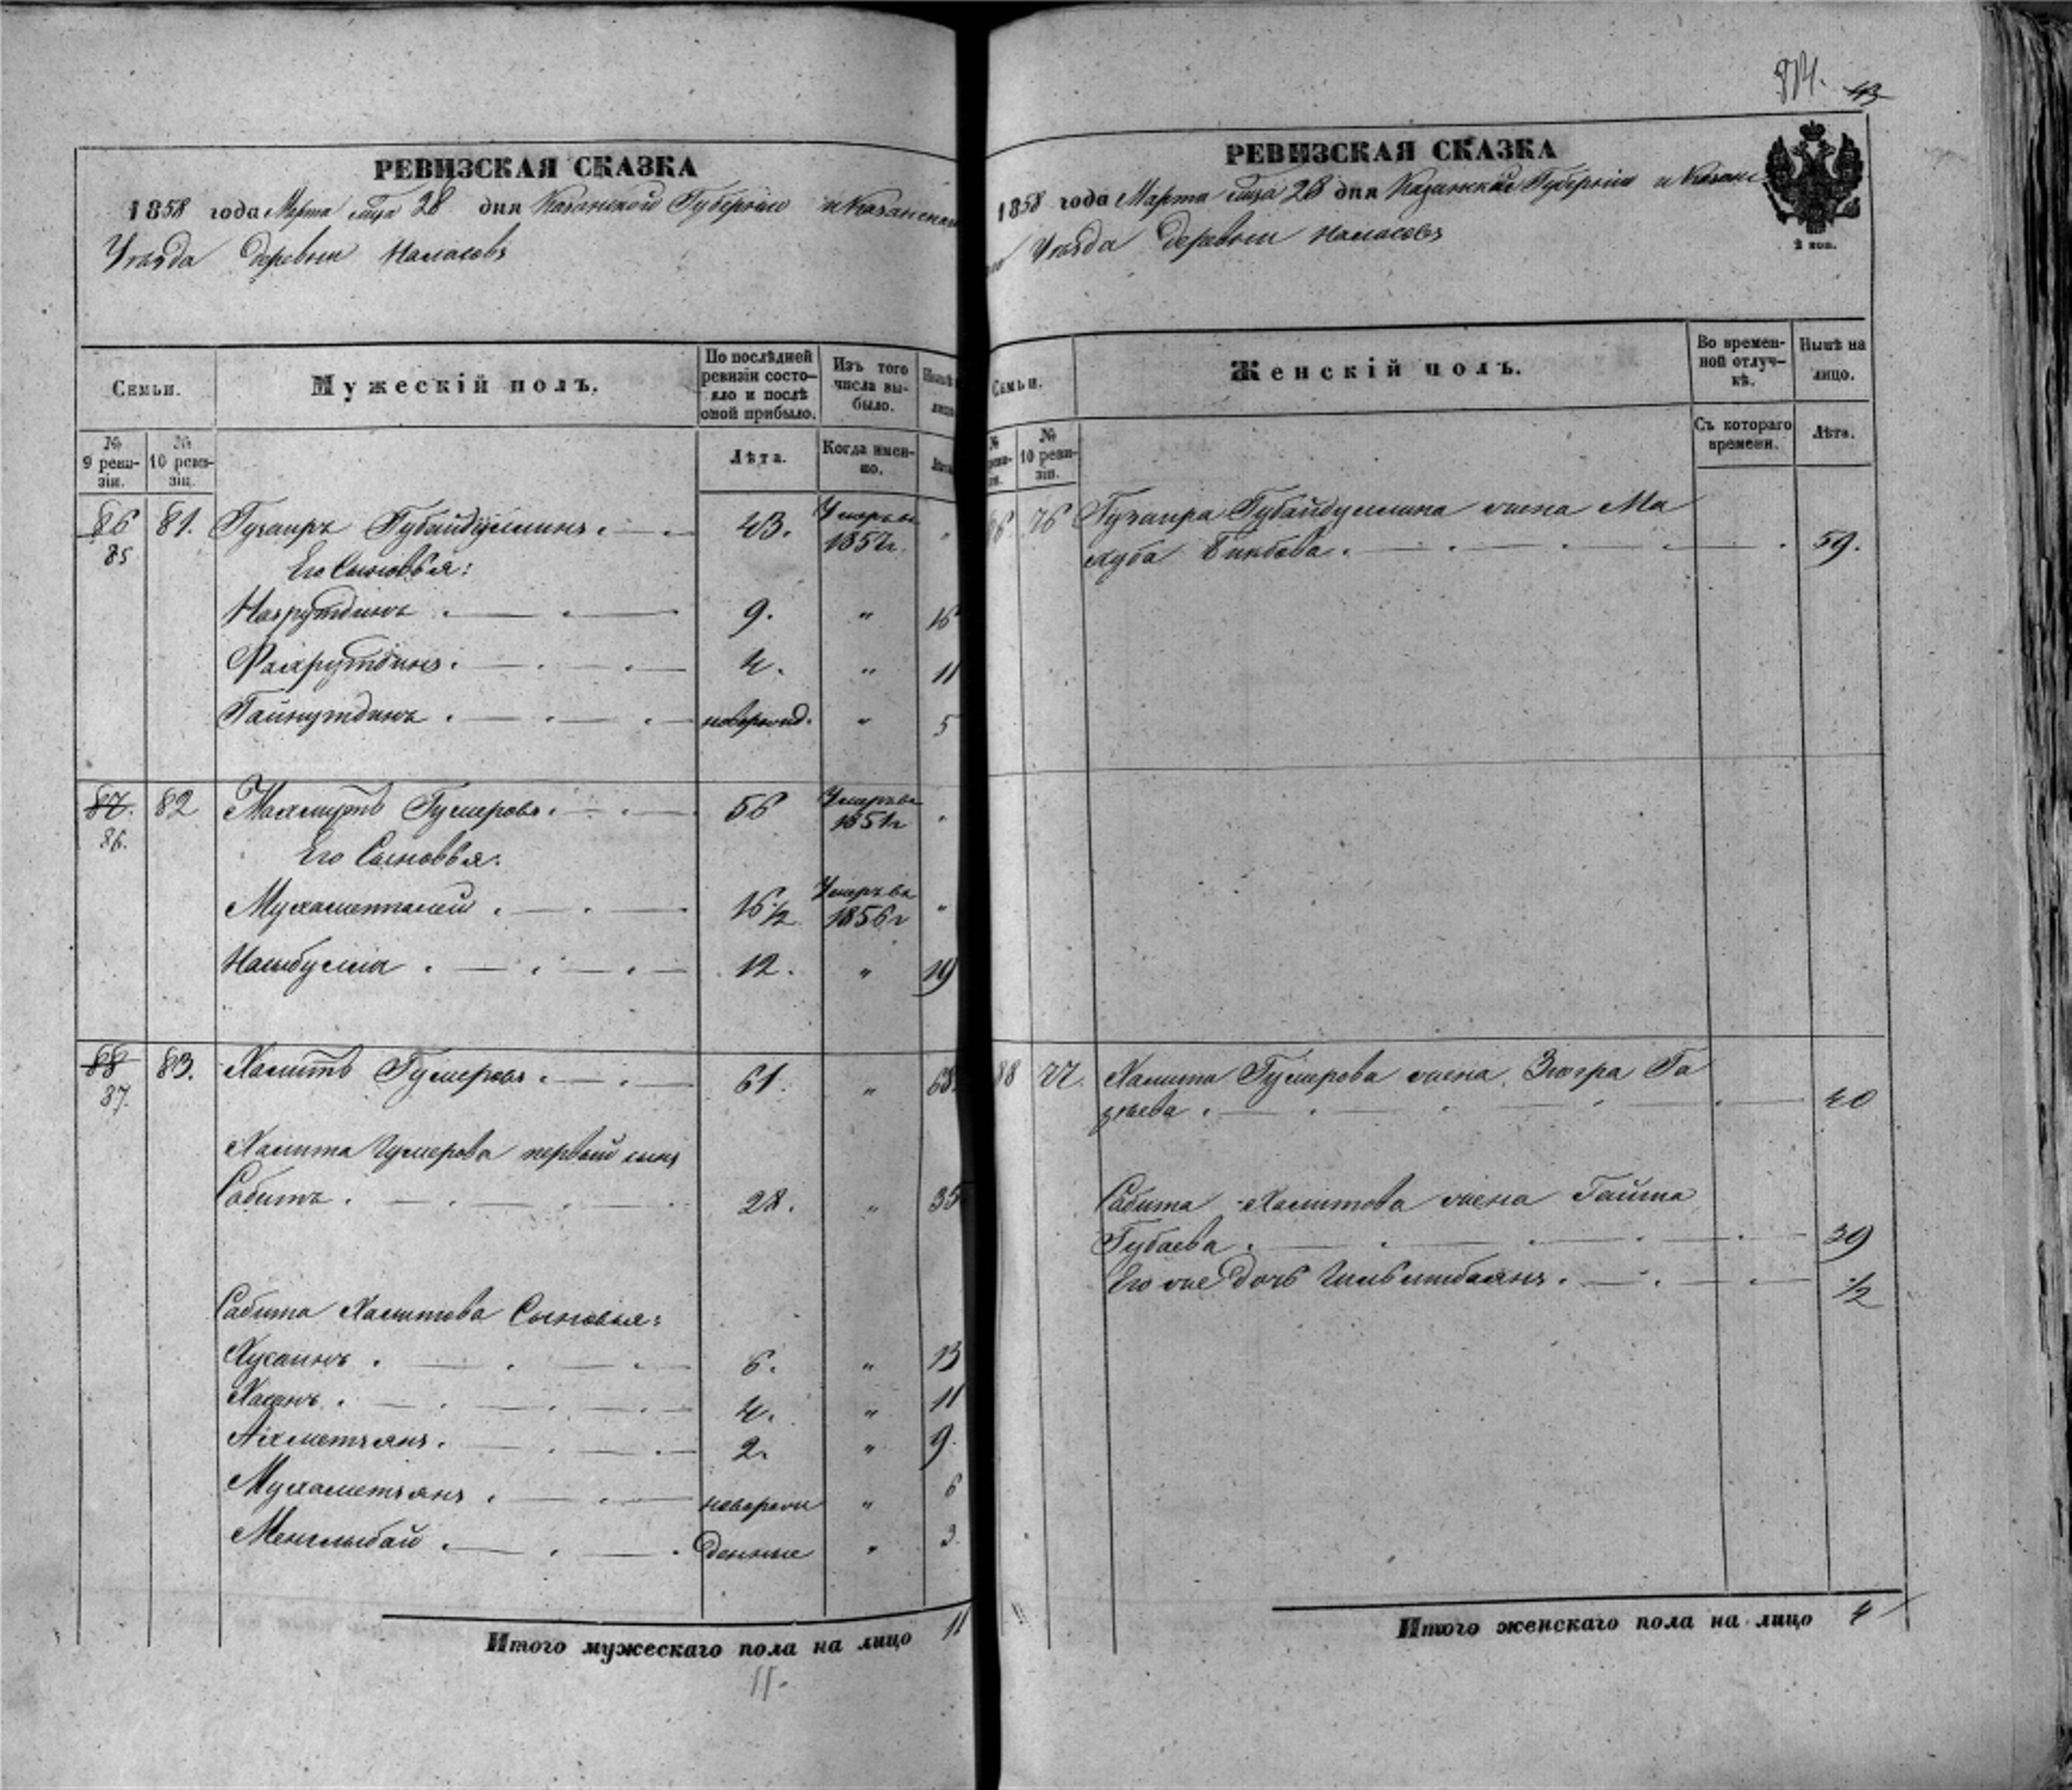 814. 43
РЕВИЗСКАЯ СКАЗКА
1858 года Марта м͠ца 28 дня Казанской Губернии и Казанска
Уѣзда деревни
Семьи.
Мужескій полъ.
По послѣдней ревизіи состояло и послѣ оной прибыло.
Изъ того числа выбыло.
№ 9 ревизіи.
№ 10 ревизіи.
Лѣта.
Когда именно.
86 81. Губайдуллинъ 43. Умеръ въ
85 1857г.
Его Сыновья:
9. " 16
Фахрутдинъ 4. " 11
Гайнутдинъ новорожд. " 5
87. 82 Махмутъ Гумеровъ 56 Умеръ въ
86. 1851г
Его Сыновья:
16½ Умеръ въ
1856г
12. " 19
88 83. Хамитъ Гумеровъ 61. " 68.
87.
Хамита Гумерова первый сынъ
Сабитъ 28. " 35
Сабита Хамитова Сыновья:
Хусаинъ 6. " 13
Хасанъ 4. " 11
Ахметзянъ 2. " 9.
Мухаметзянъ новорож " 6
Менглыбай денные " 3.
Итого мужескаго пола на лицо 11
11.
РЕВИЗСКАЯ СКАЗКА
1858 года Марта м͠ца 28 дня Казанской Губернии и Казанс
2 коп.
Уѣзда деревни
Семьи.
Женскій полъ.
Во временной отлучкѣ.
Нынѣ на лицо.
№ 10 ревизіи.
Съ котораго времени.
Лѣта.
86 76 Губайдуллина жена Ма
хуба Бикбова 59.
88 77. Хамита Гумерова жена Зюгра Га
зѣева 40
Сабита Хамитова жена
Губаева 39
Его же дочь ½
Итого женскаго пола на лицо 4